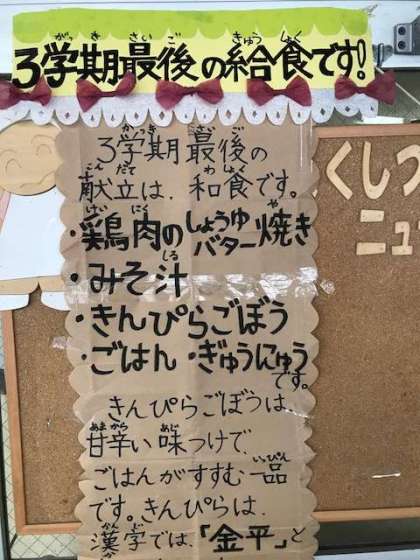 3学期最後の給食です!
3学期最後の
献立は、和食です。
・鶏肉のしょうゆバター焼き
・みそ汁
・きんぴらごぼう
・ごはん・ぎゅうにゅう
です。
きんぴらごぼうは、
甘辛い味つけで、
ごはんがすすむ一品
です。きんぴらは、
漢字では、「金平」と
くしつ
ニュ